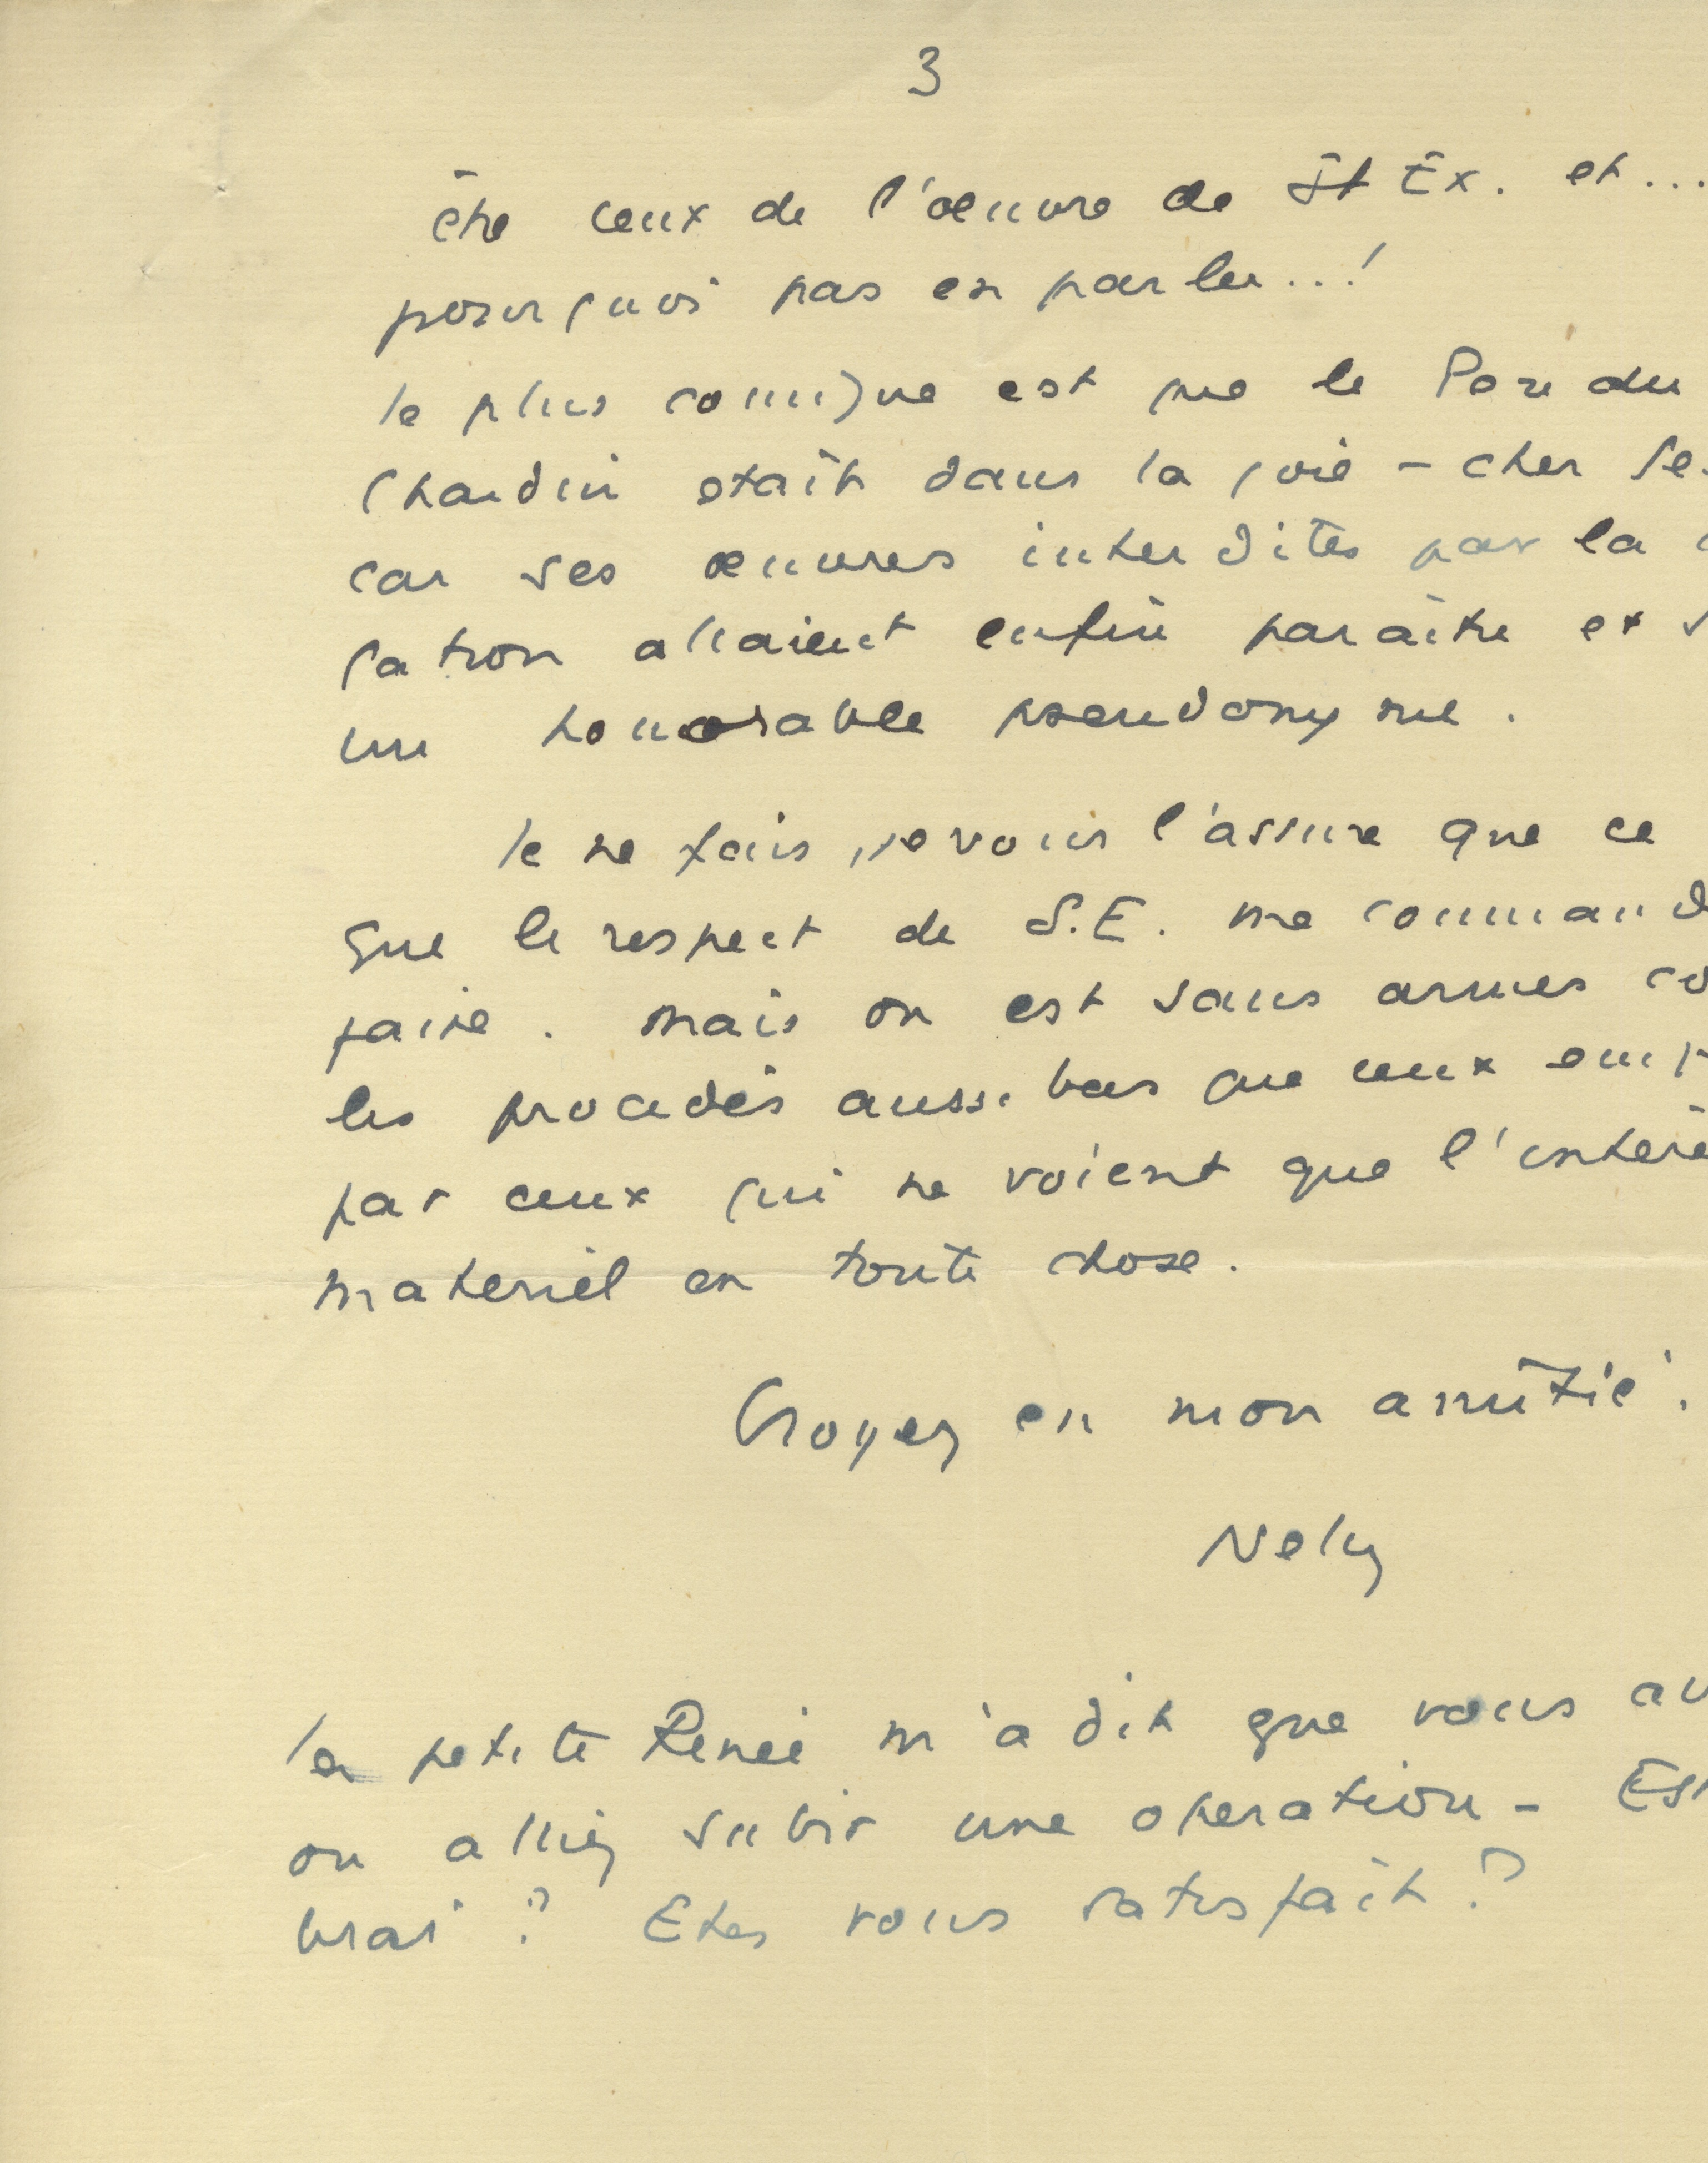 3
être ceux de l'oeuvre de St Ex. et...
pourquoi pas en parler...!
le plus comique est que le Pere du
Chardin etait dans la joie - cher
car ses oeuvres interdites par la
cation allaient enfin paraitre et
un honorable pseudonyme.
Je ne fais, je vous l'assure que ce
que le respect de S.E. me command
faire. Mais on est sans armes co
les procédés aussi bas que ceux
par ceux qui ne voient que l'interê
materiel en toute chose.
Croyez en mon amitié.
Nelly
la petite Renée m'a dit que vous av
ou alliez subir une operation - Est
vrai ? Etes vous satisfait ?